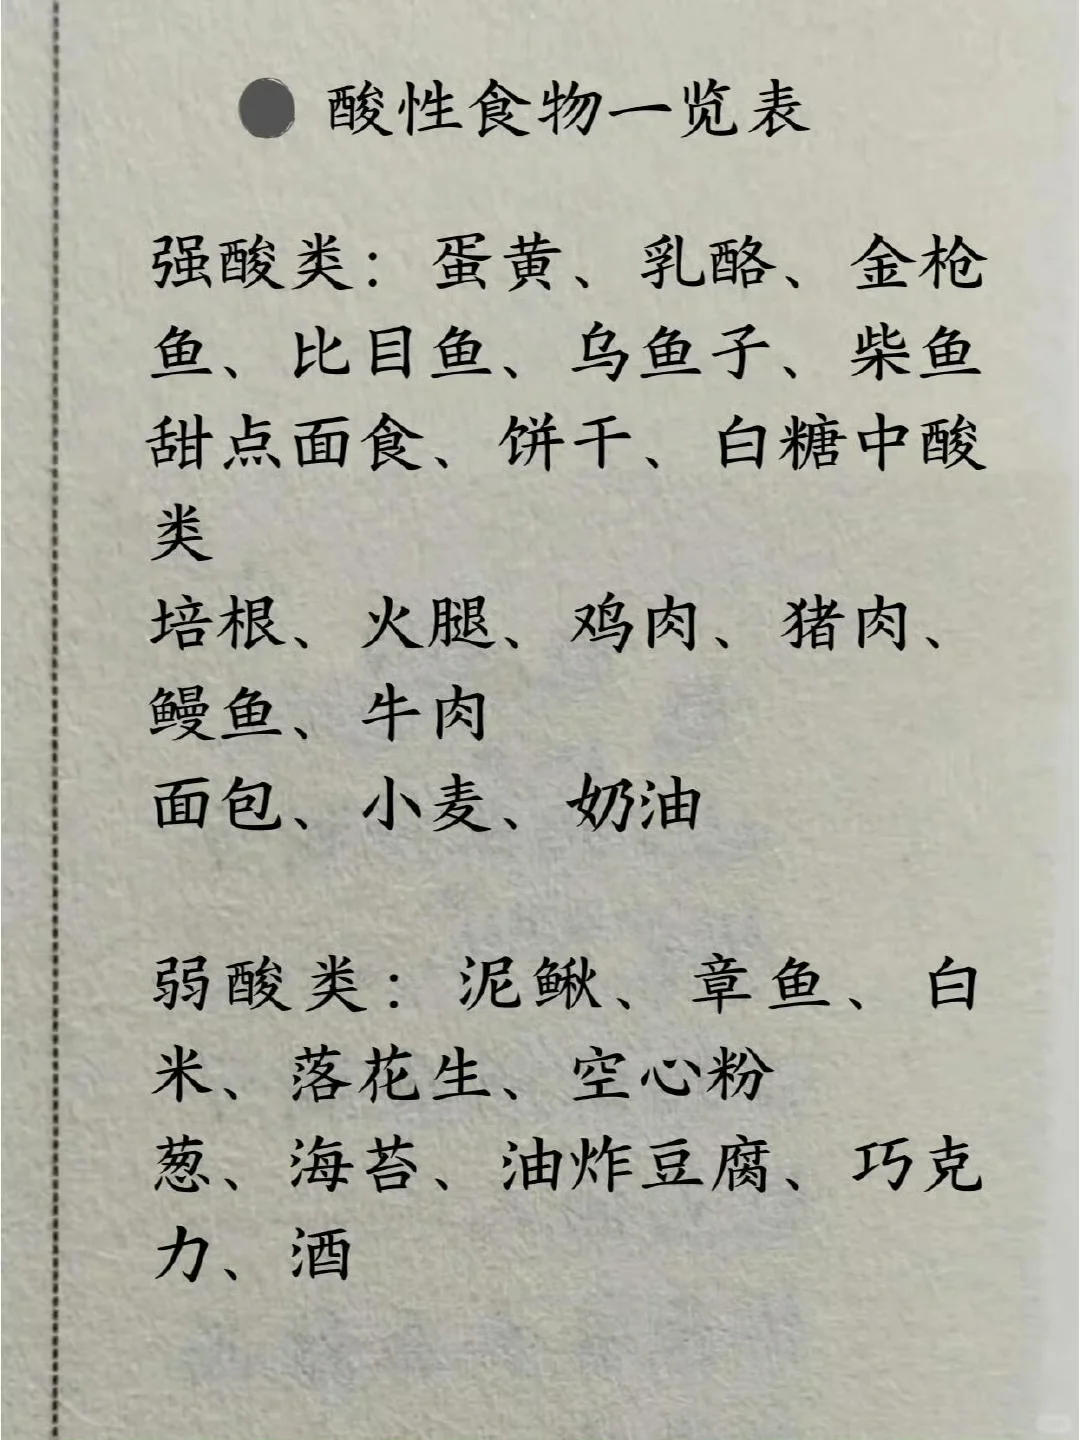 酸性食物一览表
强酸类：蛋黄、乳酪、金枪
鱼、比目鱼、乌鱼子、柴鱼
甜点面食、饼干、白糖中酸
类
培根、火腿、鸡肉、猪肉、
鳗鱼、牛肉
面包、小麦、奶油
弱酸类：泥鳅、章鱼、白
米、落花生、空心粉
葱、海苔、油炸豆腐、巧克
力、酒